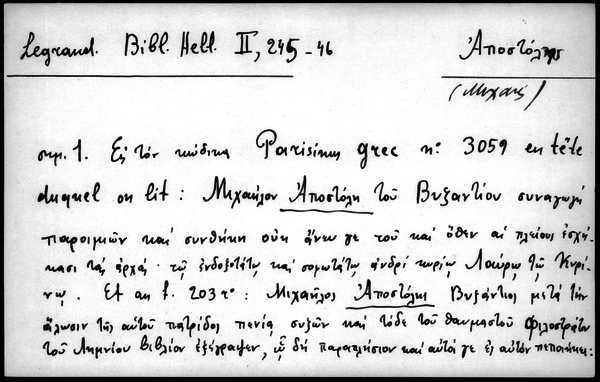 Legrand. Bibl. Hell. II, 245-46
Ἀποστόλης
(Μιχαήλ)
σημ. 1. Εἰς τὸν κώδικα Parisinus grec n° 3059 en tête
duquel on lit : Μιχαήλου Ἀποστόλη τοῦ Βυζαντίου συναγωγὴ
παροιμιῶν καὶ συνθήκη οὐκ ἄνευ γε τοῦ καὶ ὅθεν αἱ πλείους ἐσχή-
κασι τὰς ἀρχάς · τῷ ἐνδοξοτάτῳ καὶ σοφωτάτῳ ἀνδρὶ κυρίῳ Λαύρῳ τῷ Κυρί-
νῳ . Et au f. 203 r° : Μιχαῆλος Ἀποστόλης Βυζάντιος μετὰ τὴν
ἅλωσιν τῆς αὐτοῦ πατρίδος πενίᾳ συζῶν καὶ τόδε τοῦ θαυμαστοῦ Φιλοστράτου
τοῦ Λημνίου βιβλίον ἐξέγραψεν, ᾧ δὴ παραπλήσιον καὶ αὐτός γε εἰς αὐτὸν πεποίηκε :